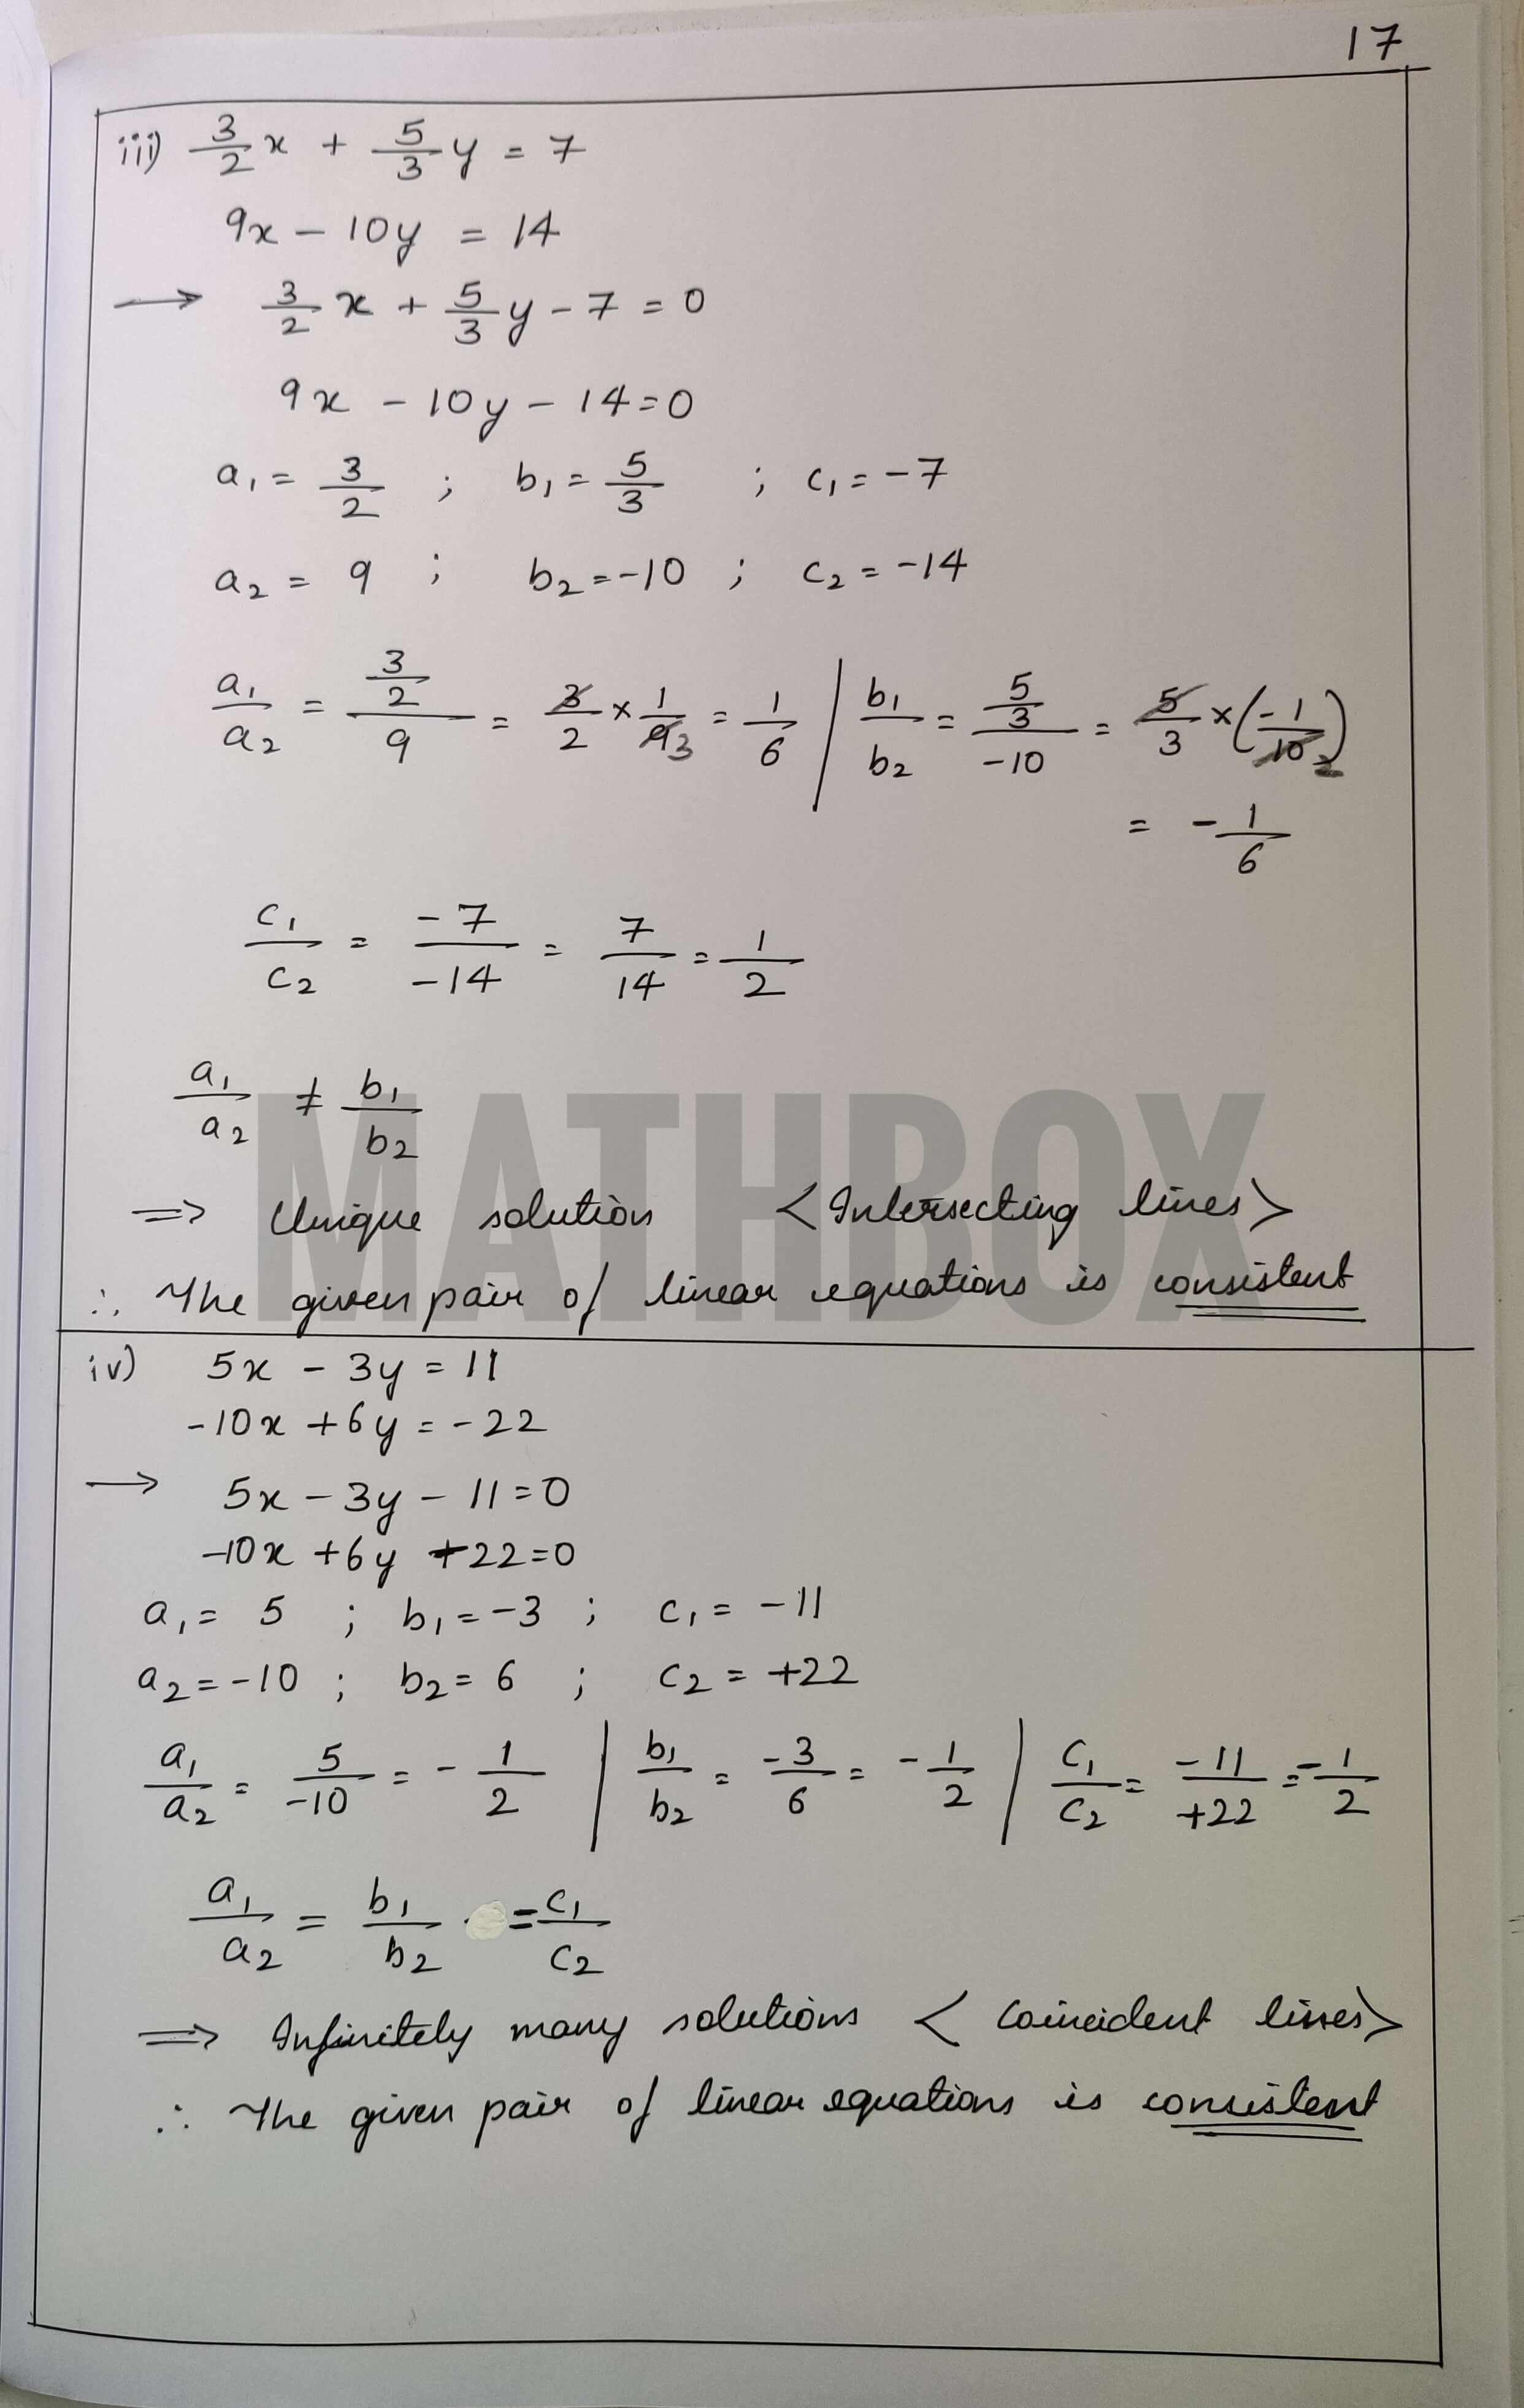 17
iii) 3/2 x + 5/3 y = 7
9x - 10y = 14
→ 3/2 x + 5/3 y - 7 = 0
9x - 10y - 14 = 0
a₁ = 3/2 ; b₁ = 5/3 ; c₁ = -7
a₂ = 9 ; b₂ = -10 ; c₂ = -14
a₁/a₂ = (3/2)/9 = 3/2 × 1/9 3 = 1/6 | b₁/b₂ = (5/3)/-10 = 5/3 × (-1/10 2)
= -1/6
c₁/c₂ = -7/-14 = 7/14 = 1/2
a₁/a₂ ≠ b₁/b₂
MATHBOX
⇒ Unique solution <Intersecting lines>
∴ The given pair of linear equations is consistent
iv) 5x - 3y = 11
-10x + 6y = -22
→ 5x - 3y - 11 = 0
-10x + 6y + 22 = 0
a₁ = 5 ; b₁ = -3 ; c₁ = -11
a₂ = -10 ; b₂ = 6 ; c₂ = +22
a₁/a₂ = 5/-10 = -1/2 | b₁/b₂ = -3/6 = -1/2 | c₁/c₂ = -11/+22 = -1/2
a₁/a₂ = b₁/b₂ = c₁/c₂
⇒ Infinitely many solutions < Coincident lines>
∴ The given pair of linear equations is consistent